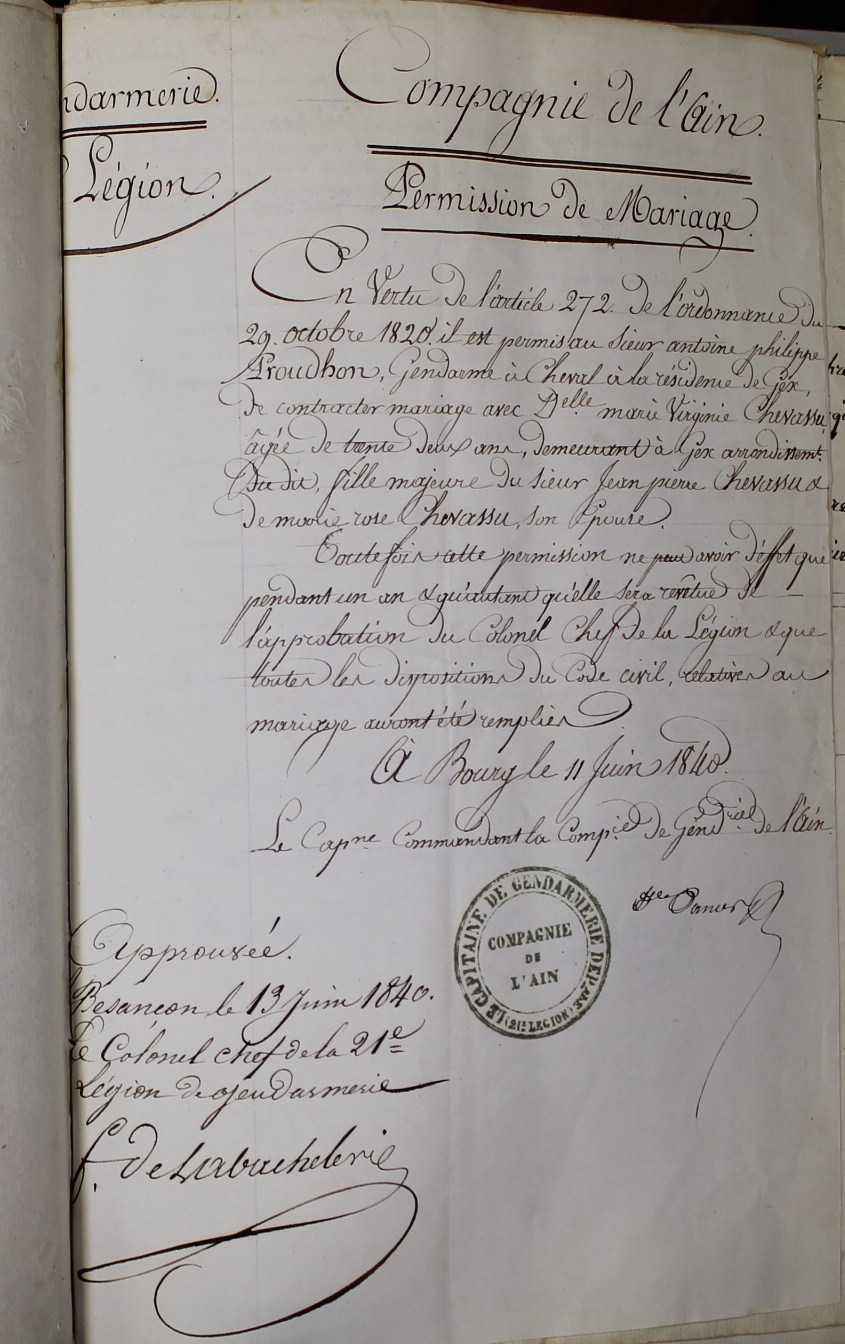 ndarmerie.
Légion.
Compagnie de l'Ain.
Permission de Mariage.
En Vertu de l'article 272. de l'ordonnance du
29. octobre 1820. il est permis au sieur antoine philippe
Proudhon, Gendarme à Cheval à la résidence de Gex,
de contracter mariage avec Delle marie Virginie Chevassu,
âgée de trente deux ans, demeurant à Gex arrondissemt.
Du dit, fille majeure du sieur Jean pierre Chevassu &
De marie rose Chevassu, son Epouse.
Toutefois cette permission ne peut avoir d'effet que
pendant un an & qu'autant qu'elle sera revêtue de
l'approbation du Colonel Chef de la Légion & que
toutes les dispositions du Code civil, relatives au
mariage auront été remplies
A Bourg le 11 Juin 1840.
Le Capne Commandant la Compie de Gendrie de l'Ain
LE CAPITAINE DE GENDARMERIE DEPALE
(21E LEGION)
COMPAGNIE
DE
L'AIN
Approuvée.
Besançon le 13 Juin 1840.
Le Colonel chef de la 21e
Légion de gendarmerie
f. de Labachelerie